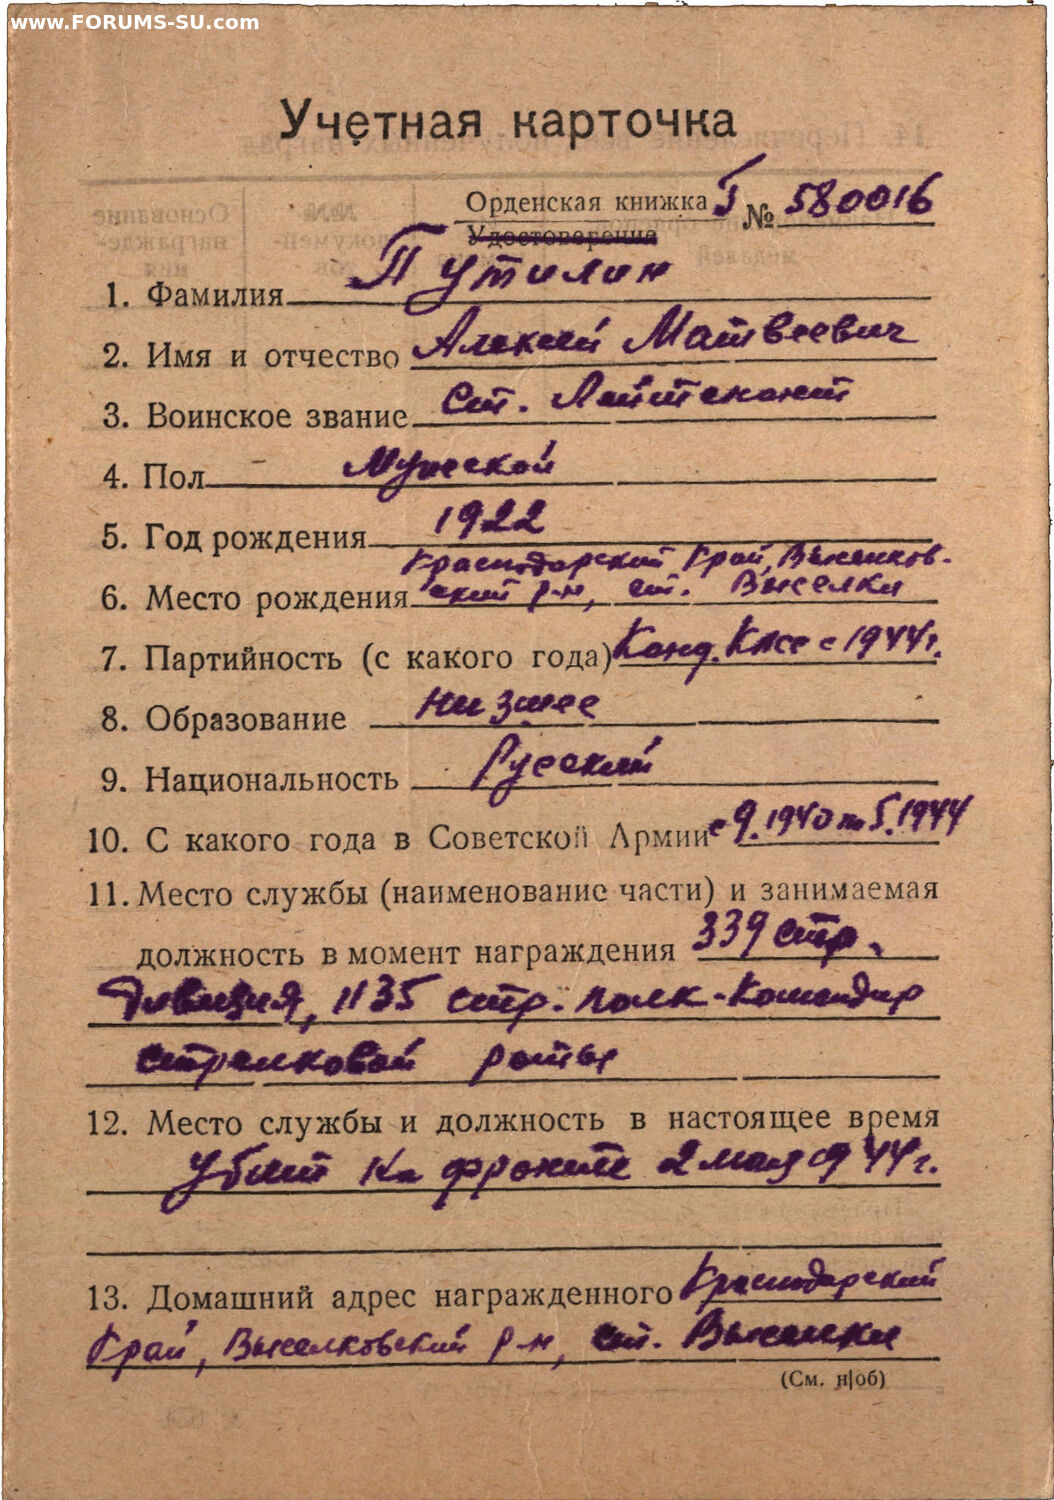 www.FORUMS-SU.com
Учетная карточка
Орденская книжка Г № 580016
Удостоверение
1. Фамилия Путилин
2. Имя и отчество Алексей Матвеевич
3. Воинское звание Ст. Лейтенант
4. Пол Мужской
5. Год рождения 1922
Краснодарский Край, Выселков-
6. Место рождения ский р-н, ст. Выселки
7. Партийность (с какого года) Канд. КПСС с 1944г.
8. Образование Низшее
9. Национальность Русский
10. С какого года в Советской Армии с 9.1940 по 5.1944
11. Место службы (наименование части) и занимаемая
должность в момент награждения 339 стр.
Дивизия, 1135 стр. полк - Командир
стрелковой роты
12. Место службы и должность в настоящее время
Убит на фронте 2 мая 1944г.
13. Домашний адрес награжденного Краснодарский
Край, Выселковский р-н, ст. Выселки
(См. н|об)